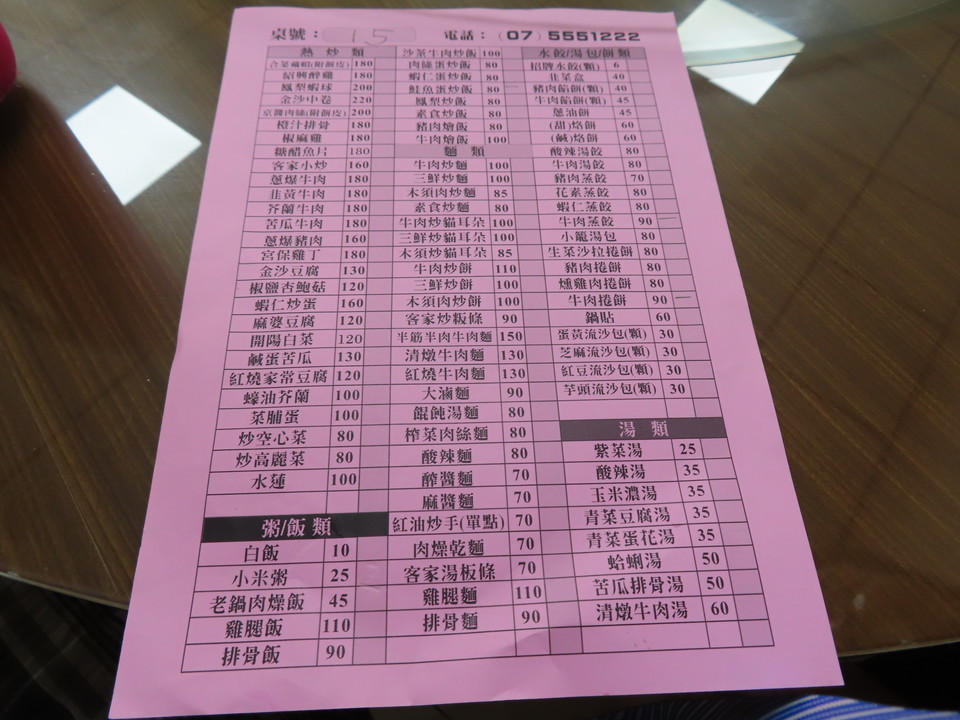 桌號： 15 電話：(07) 5551222
熱炒類
合菜戴帽(附餅皮) 180
紹興醉雞 180
鳳梨蝦球 200
金沙中卷 220
京醬肉絲(附餅皮) 200
橙汁排骨 180
椒麻雞 180
糖醋魚片 180
客家小炒 160
蔥爆牛肉 180
韭黃牛肉 180
芥蘭牛肉 180
苦瓜牛肉 180
蔥爆豬肉 160
宮保雞丁 180
金沙豆腐 130
椒鹽杏鮑菇 120
蝦仁炒蛋 160
麻婆豆腐 120
開陽白菜 120
鹹蛋苦瓜 130
紅燒家常豆腐 120
蠔油芥蘭 100
菜脯蛋 100
炒空心菜 80
炒高麗菜 80
水蓮 100
粥/飯類
白飯 10
小米粥 25
老鍋肉燥飯 45
雞腿飯 110
排骨飯 90
沙茶牛肉炒飯 100
肉絲蛋炒飯 80
蝦仁蛋炒飯 80
鮭魚蛋炒飯 80
鳳梨炒飯 80
素食炒飯 80
豬肉燴飯 80
牛肉燴飯 100
麵類
牛肉炒麵 100
三鮮炒麵 100
木須肉炒麵 85
素食炒麵 80
牛肉炒貓耳朵 100
三鮮炒貓耳朵 100
木須炒貓耳朵 85
牛肉炒餅 110
三鮮炒餅 100
木須肉炒餅 100
客家炒粄條 90
半筋半肉牛肉麵 150
清燉牛肉麵 130
紅燒牛肉麵 130
大滷麵 90
餛飩湯麵 80
榨菜肉絲麵 80
酸辣麵 80
酢醬麵 70
麻醬麵 70
紅油炒手(單點) 70
肉燥乾麵 70
客家湯板條 70
雞腿麵 110
排骨麵 90
水餃/湯包/餅類
招牌水餃(顆) 6
韭菜盒 40
豬肉餡餅(顆) 40
牛肉餡餅(顆) 45
蔥油餅 45
(甜)烙餅 60
(鹹)烙餅 60
酸辣湯餃 80
牛肉湯餃 80
豬肉蒸餃 70
花素蒸餃 80
蝦仁蒸餃 80
牛肉蒸餃 90
小籠湯包 80
生菜沙拉捲餅 80
豬肉捲餅 80
燻雞肉捲餅 80
牛肉捲餅 90
鍋貼 60
蛋黃流沙包(顆) 30
芝麻流沙包(顆) 30
紅豆流沙包(顆) 30
芋頭流沙包(顆) 30
湯類
紫菜湯 25
酸辣湯 35
玉米濃湯 35
青菜豆腐湯 35
青菜蛋花湯 35
蛤蜊湯 50
苦瓜排骨湯 50
清燉牛肉湯 60